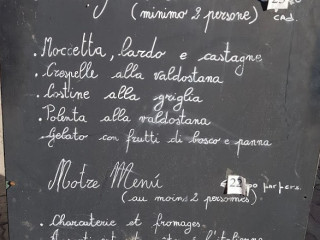 (minimo 2 persone)
cad.
. Mocetta, lardo e castagne
. Crespelle alla valdostana
. Costine alla griglia
. Polenta alla valdostana
. Gelato con frutti di bosco e panna
Notre Menú
(au moins 2 personnes)
22
par pers.
. Charcuterie et fromages